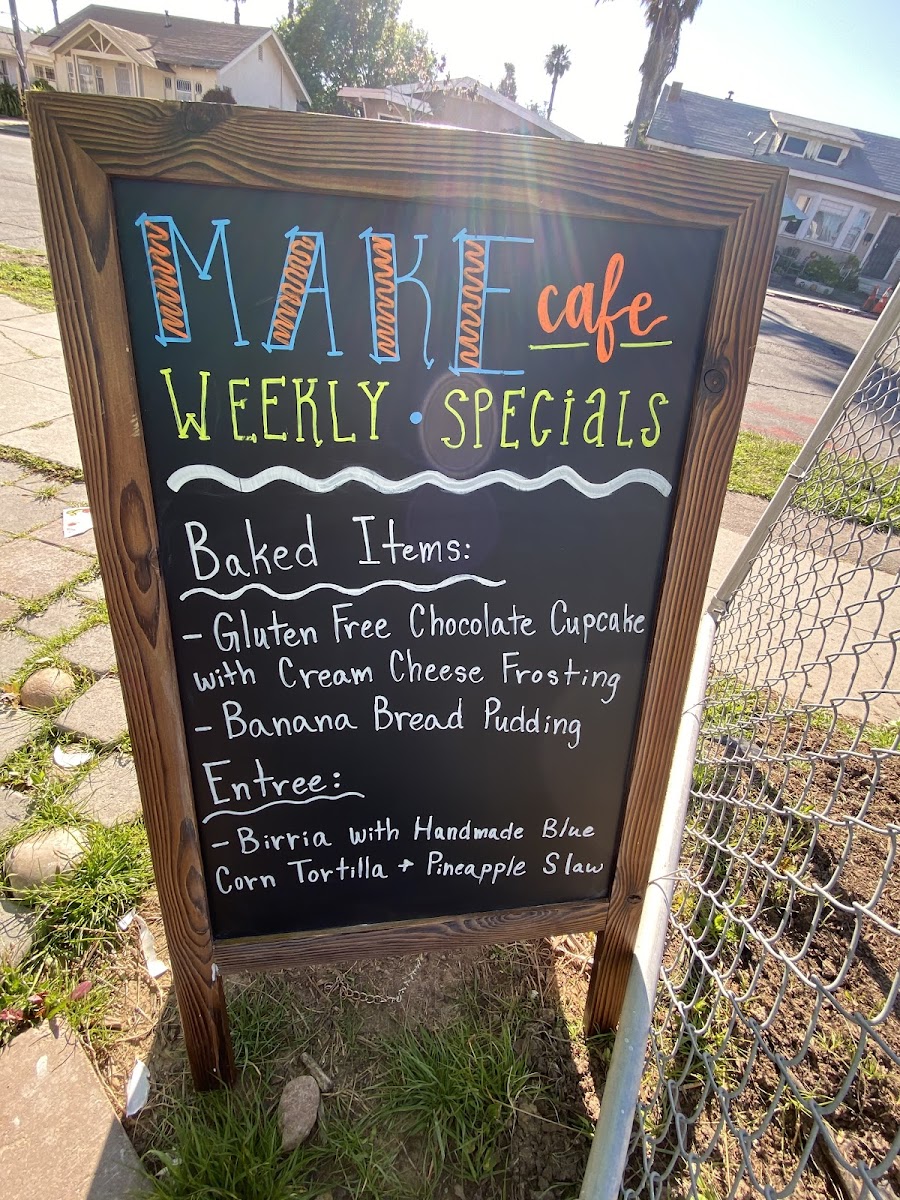 MAKE cafe
WEEKLY • SPECiaLS
Baked Items:
- Gluten Free Chocolate Cupcake
with Cream Cheese Frosting
- Banana Bread Pudding
Entree:
- Birria with Handmade Blue
Corn Tortilla + Pineapple Slaw